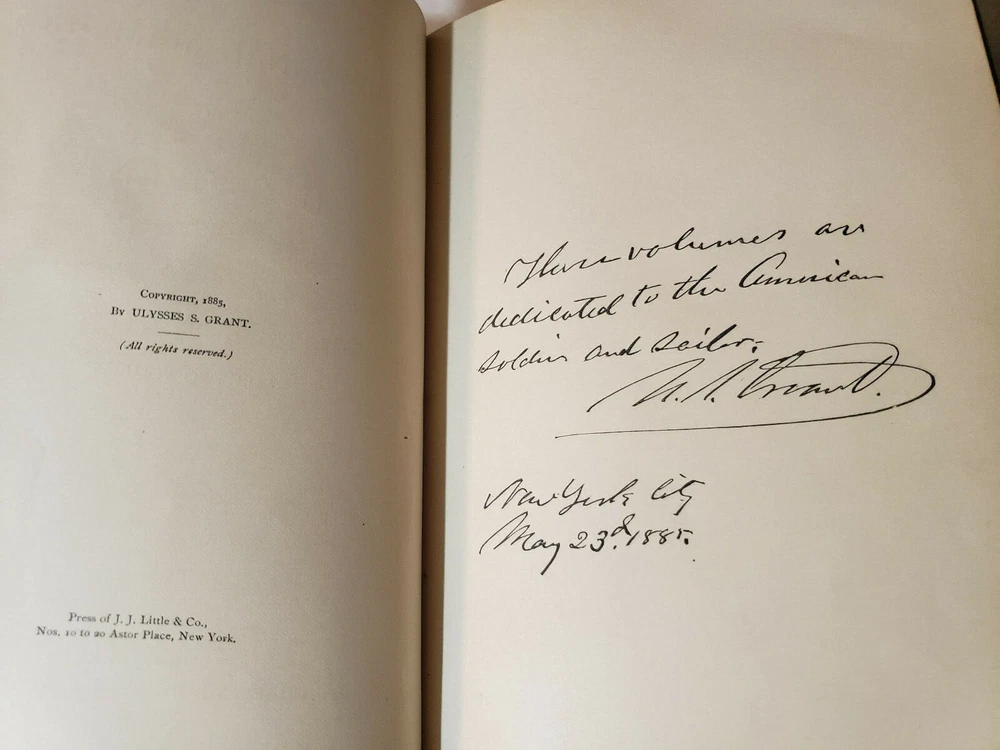 COPYRIGHT, 1885,
BY ULYSSES S. GRANT.
(All rights reserved.)
Press of J. J. Little & Co.,
Nos. 10 to 20 Astor Place, New York.
These volumes are
dedicated to the American
soldier and sailor.
U. S. Grant.
New York City
May 23d. 1885.